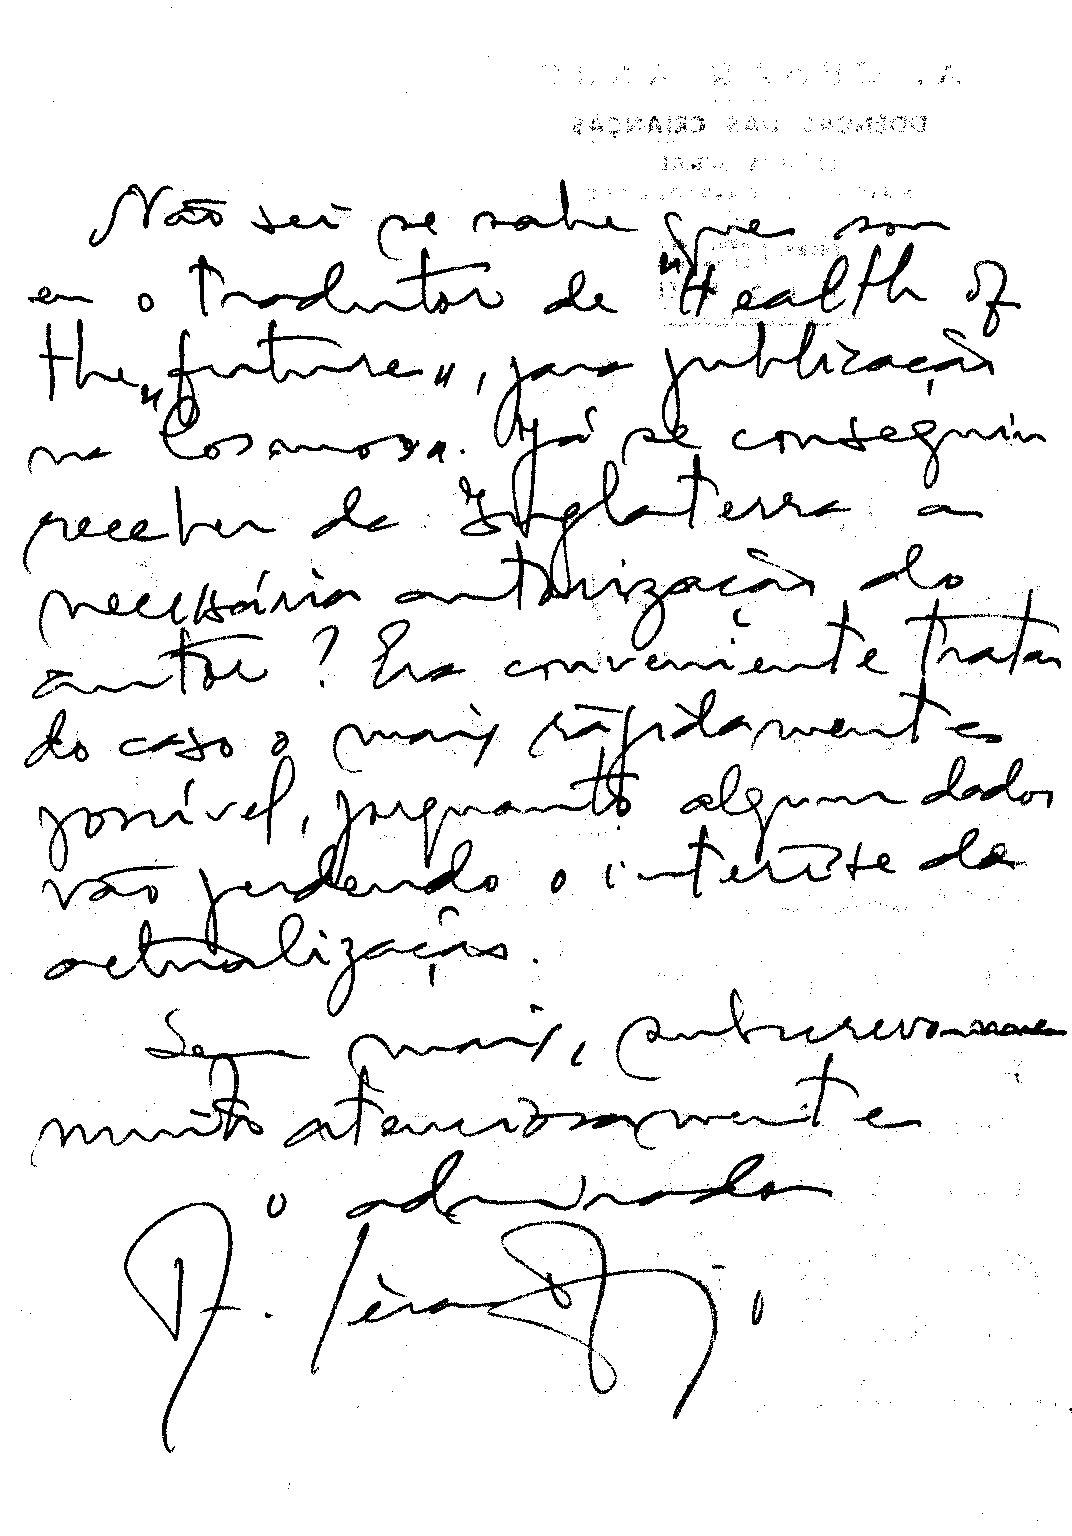 DOENÇAS DAS CRIANÇAS
Não sei se sabe que sou
eu o tradutor de "Health of
the future", para publicação
na "Cosmos". Já se conseguiu
receber da Inglaterra a
necessária autorização do
autor? Era conveniente tratar
do caso o mais ràpidamente
possível, porquanto alguns dados
vão perdendo o interêsse da
actualização.
Sem mais, subscrevo-me
muito atenciosamente
o admirador